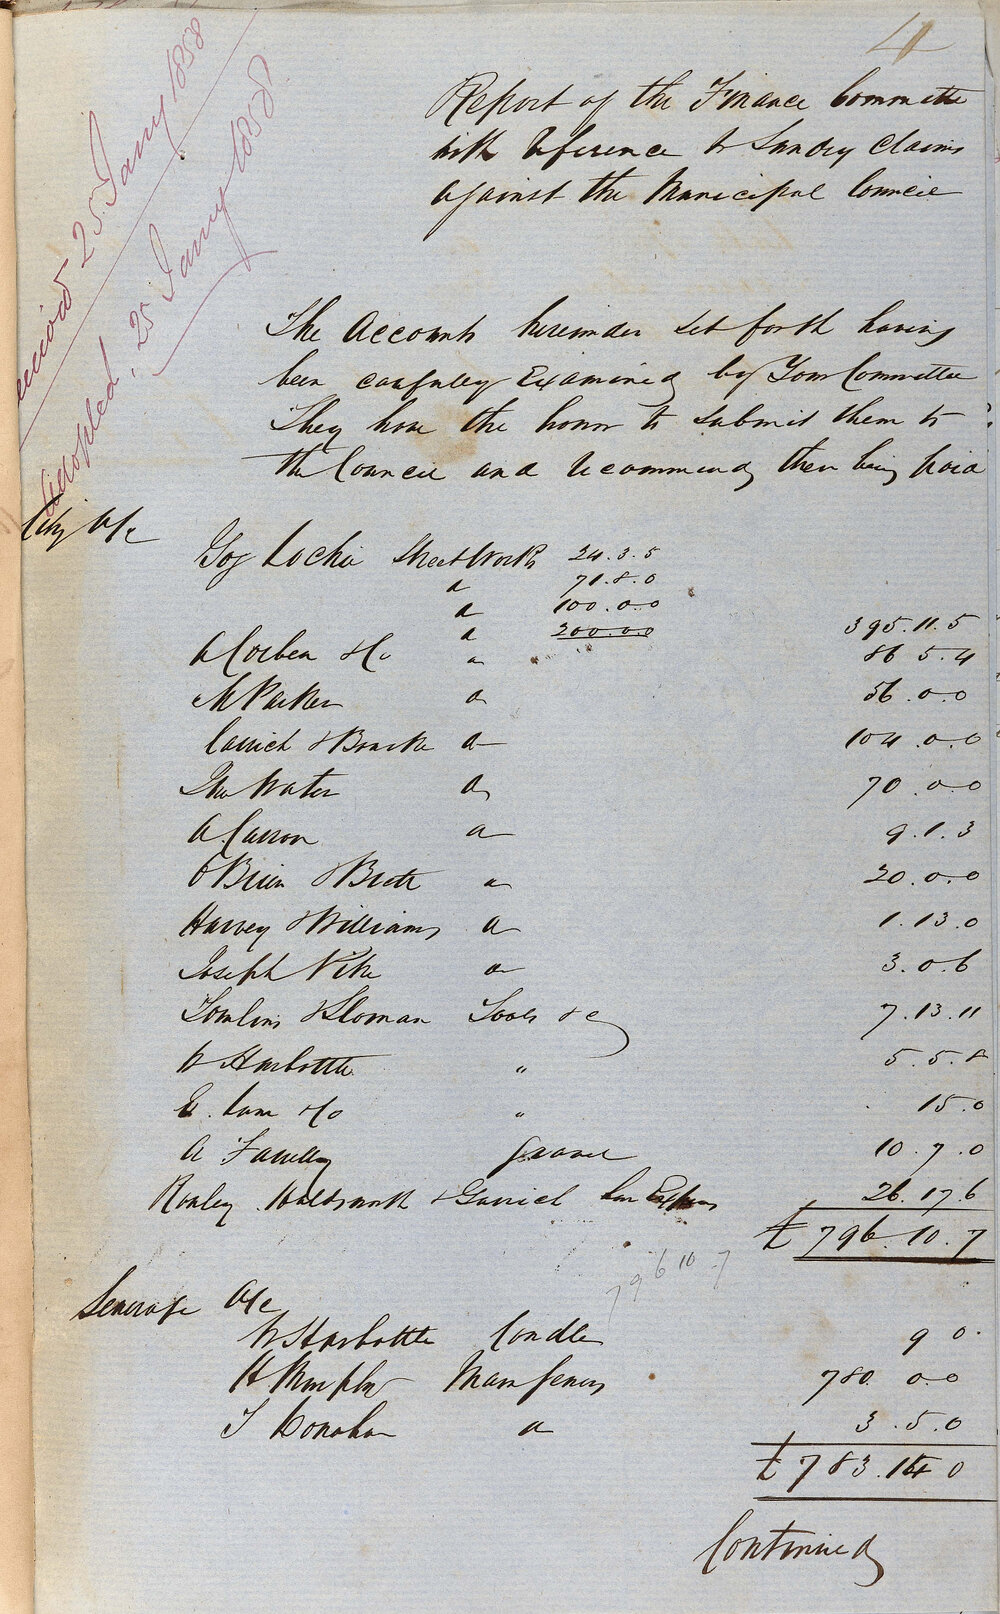 4
Received 25 Jany 1858
Adopted, 25 Jany 1858
Report of the Finance Committee
with reference to Sundry Claims
against the Municipal Council
The Accounts hereunder set forth having
been carefully Examined by Your Committee
They have the honor to submit them to
the Council and recommend their being paid
City A/c
Geo Street Work 24.3.5
a 71.8.0
a 100.0.0
a 200.0.0 395.11.5
A Corben & Co a 86 5.4
M Parker a 56.0.0
Carrick & Bourke a 104.0.0
Thos Water a 70.0.0
A. Carron a 9.1.3
O'Brien & Brett a 20.0.0
Harvey & Williams a 1.13.0
Joseph Pike a 3.0.6
Tomlins & Sloman Tools &c 7.13.11
W Harbottle " 5.5.8
& Co " 15.0
A Farrelly Gravel 10.7.0
Rowley Holdsworth & Garrick 26.17 6
£ 796.10.7
796 10 7
Sewerage A/c
W Harbottle Candles 9 0.
H. Murphy Main Sewers 780 0.0
T Donohoe a 3.5.0
£ 783.14 0
Continued